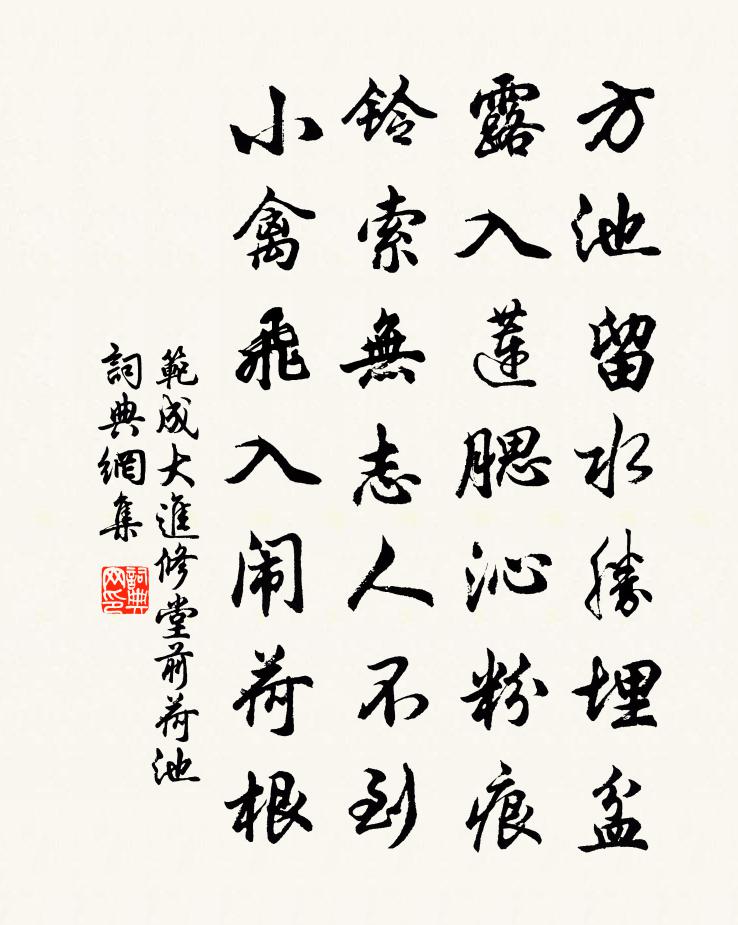 方池留水勝埋盆
露入蓮腮沁粉痕
鈴索無志人不到
小禽飛入闹荷根
範成大進修堂前荷池
詞典網集
詞典网印